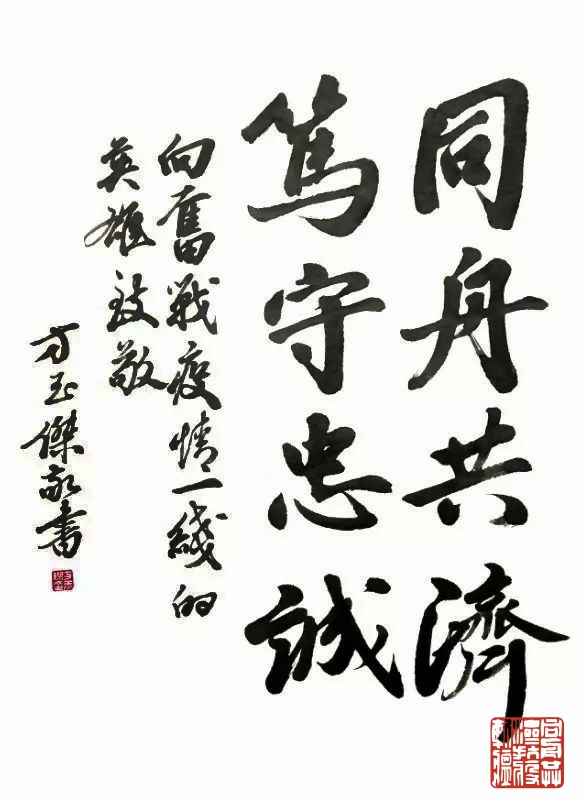 同舟共濟
篤守忠誠
向奮戰疫情一綫的
英雄致敬
方玉傑敬書